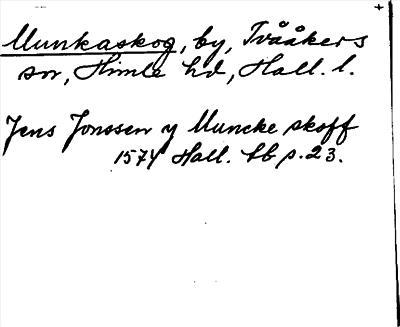 Munkaskog, by, Tvååkers
sn, Himle hd, Hall. l.
Jens Jonssen y Muncke skoff
1574 Hall. lb p. 23.